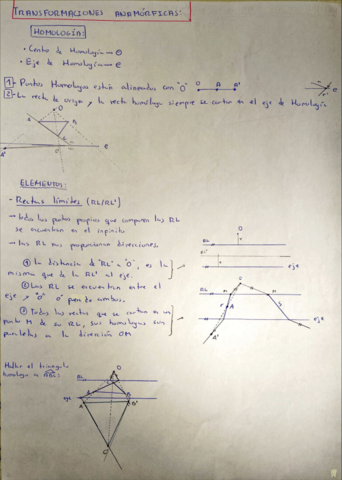 TRANSFORMACIONES ANAMÓRFICAS:
HOMOLOGÍA:
• Centro de Homología → O
• Eje de Homología → e
1- Puntos Homólogos están alineados con "O"
O A A'
2- La recta de origen y la recta homóloga siempre se cortan en el eje de Homología
O
e
A'
ELEMENTOS:
- Rectas límites (RL/RL')
→ todos los puntos propios que componen las RL
se encuentran en el infinito
→ las RL nos proporcionan direcciones.
① La distancia de "RL" a "O", es la
misma que de la RL' al eje.
② Las RL se encuentran entre el
eje y "O" o por ambos.
③ Todas las rectas que se cortan en un
punto M de su RL, sus homólogas son
paralelas a la dirección OM.
O
RL
RL'
eje
O
RL
M
N
r
A
s
eje
A'
Hallar el triángulo
homólogo a ABC:
O
RL
eje
A
B
A'
B'
C'